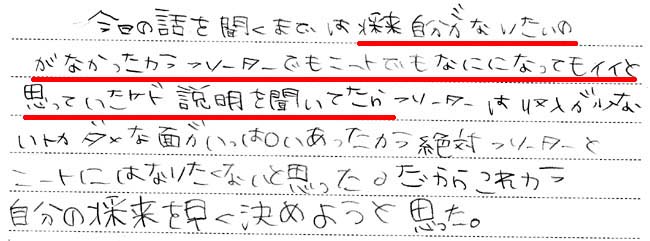 今日の話を聞くまでは将来自分がないたいの
がなかったカラフリーターでもニートでもなにになってもイイと
思っていたケド説明を聞いてたらフリーターは収入が少な
いトカダメな面がいっぱいあったから絶対フリーターと
ニートにはなりたくないと思った。だからこれから
自分の将来を早く決めようと思った。